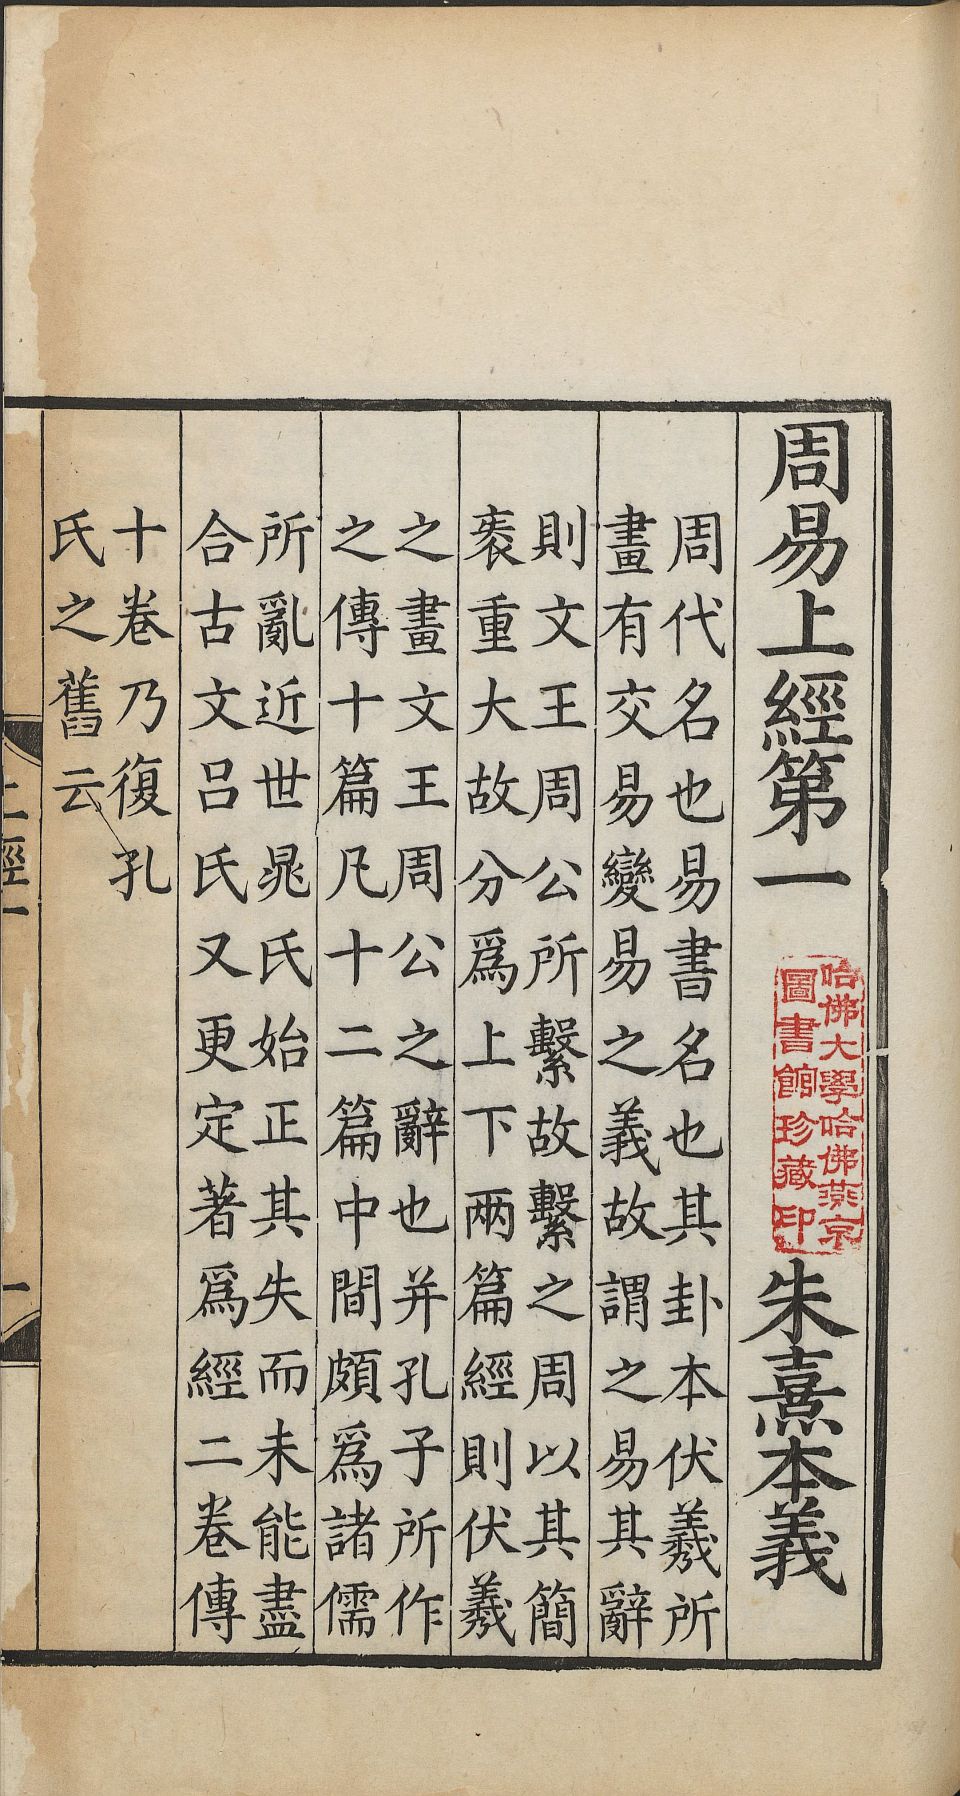 周易上經第一
哈佛大學哈佛燕京
圖書館珍藏印
朱熹本義
周代名也易書名也其卦本伏羲所
畫有交易變易之義故謂之易其辭
則文王周公所繫故繫之周以其簡
袠重大故分爲上下兩篇經則伏羲
之畫文王周公之辭也并孔子所作
之傳十篇凡十二篇中間頗爲諸儒
所亂近世晁氏始正其失而未能盡
合古文吕氏又更定著爲經二卷傳
十卷乃復孔
氏之舊云
上經一
一